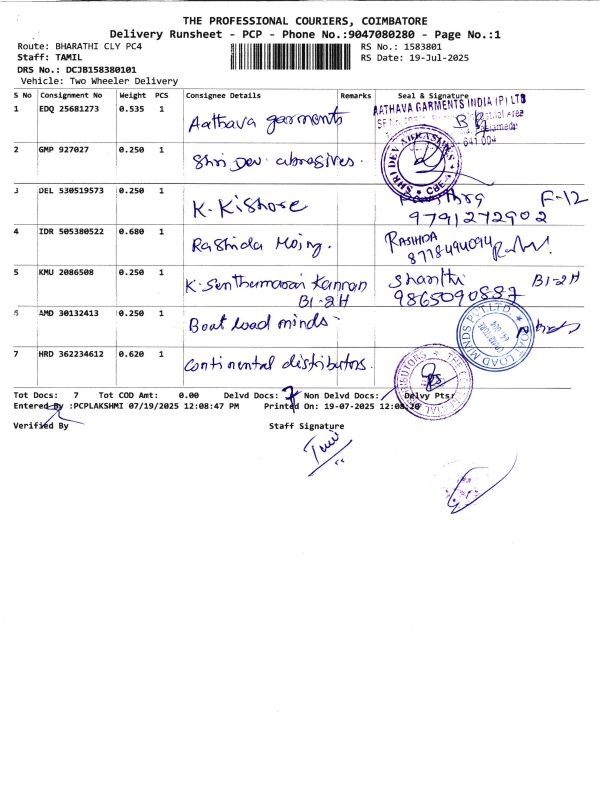 THE PROFESSIONAL COURIERS, COIMBATORE
Delivery Runsheet - PCP - Phone No.:9047080280 - Page No.:1
Route: BHARATHI CLY PC4 RS No.: 1583801
Staff: TAMIL RS Date: 19-Jul-2025
DRS No.: DCJB158380101
Vehicle: Two Wheeler Delivery
S No Consignment No Weight PCS Consignee Details Remarks Seal & Signature
1 EDQ 25681273 0.535 1 Aathava garments AATHAVA GARMENTS INDIA (P) LTD
641 004
2 GMP 927027 0.250 1 Shri Dev abrasives. SHRI DEV ABRASIVES CBE
3 DEL 530519573 0.250 1 K. Kishore F-12
9791272902
4 IDR 505380522 0.680 1 Rashida Moing. RASHIDA
8778494094
5 KMU 2086508 0.250 1 K. Senthamarai Kannan Shanthi B1-2H
B1-2H 9865090887
6 AMD 30132413 0.250 1 Boat load minds BOAT LOAD MINDS PVT LTD
7 HRD 362234612 0.620 1 Continental distributors.
Tot Docs: 7 Tot COD Amt: 0.00 Delvd Docs: 7 Non Delvd Docs: Delvy Pts:
Entered By :PCPLAKSHMI 07/19/2025 12:08:47 PM Printed On: 19-07-2025 12:08:20
Verified By Staff Signature